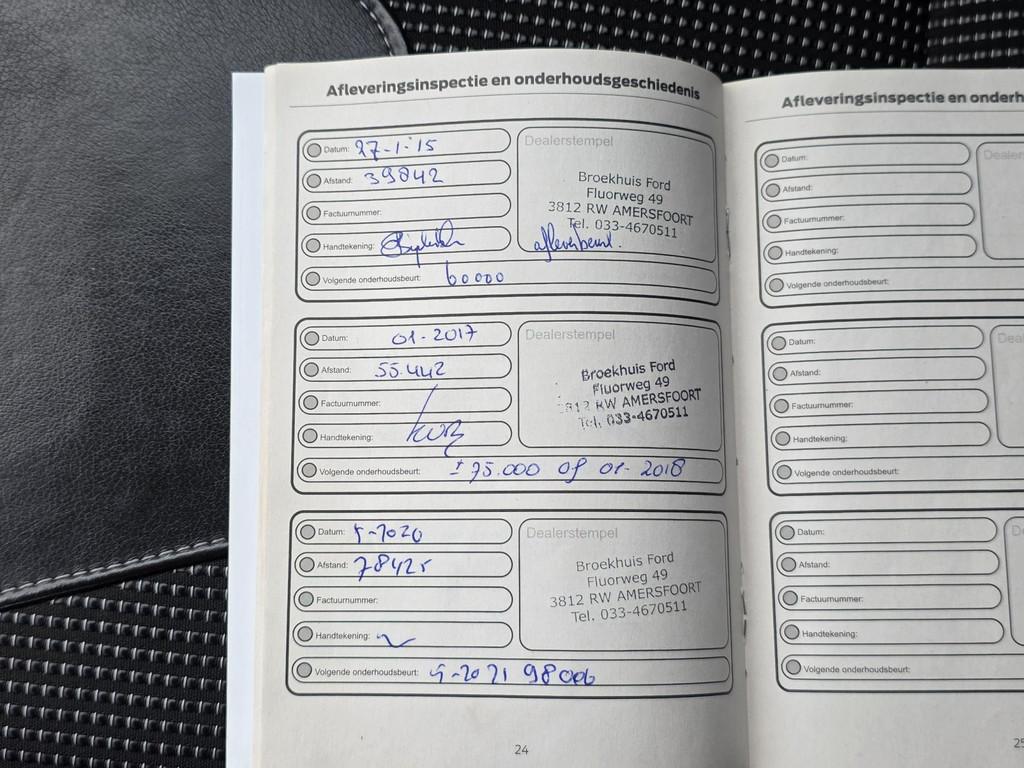 Afleveringsinspectie en onderhoudsgeschiedenis
Datum: 27-1-'15
Afstand: 39842
Factuurnummer:
Handtekening:
Volgende onderhoudsbeurt: 60000
Dealerstempel
Broekhuis Ford
Fluorweg 49
3812 RW AMERSFOORT
Tel. 033-4670511
afleverbeurt.
Datum: 01-2017
Afstand: 55.442
Factuurnummer:
Handtekening:
Volgende onderhoudsbeurt: ± 75.000 of 01-2018
Dealerstempel
Broekhuis Ford
Fluorweg 49
3812 RW AMERSFOORT
Tel. 033-4670511
Datum: 5-2020
Afstand: 78425
Factuurnummer:
Handtekening:
Volgende onderhoudsbeurt: 5-2021 98000
Dealerstempel
Broekhuis Ford
Fluorweg 49
3812 RW AMERSFOORT
Tel. 033-4670511
24
Afleveringsinspectie en onderh
Datum:
Afstand:
Factuurnummer:
Handtekening:
Volgende onderhoudsbeurt:
Dealer
Datum:
Afstand:
Factuurnummer:
Handtekening:
Volgende onderhoudsbeurt:
Dea
Datum:
Afstand:
Factuurnummer:
Handtekening:
Volgende onderhoudsbeurt:
D
25